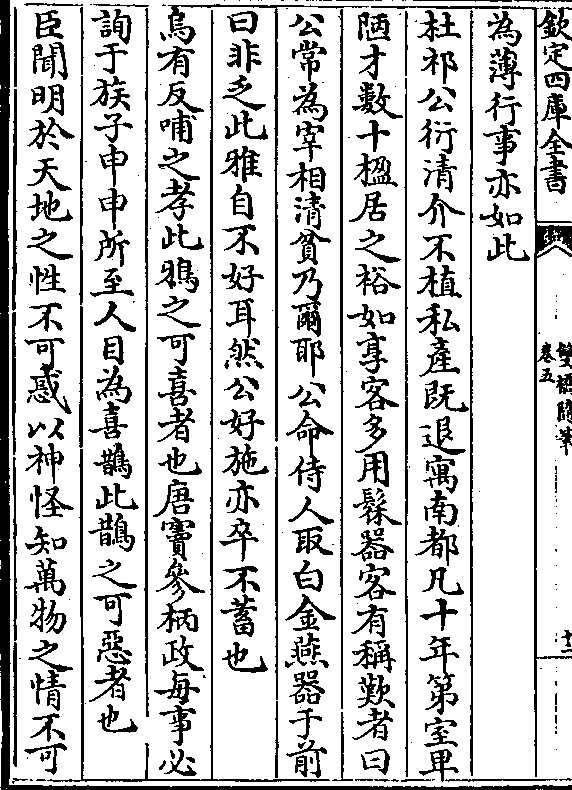 欽定四庫全書
雙橋隨筆
卷五
十二
為薄行事亦如此
杜祁公衍清介不植私產既退寓南都凡十年第室卑
陋才數十楹居之裕如享客多用髹器客有稱歎者曰
公常為宰相清貧乃爾耶公命侍人取白金燕器于前
曰非乏此雅自不好耳然公好施亦卒不蓄也
烏有反哺之孝此鴉之可喜者也唐竇參柄政每事必
詢于族子申申所至人目為喜鵲此鵲之可惡者也
臣聞明於天地之性不可惑以神怪知萬物之情不可